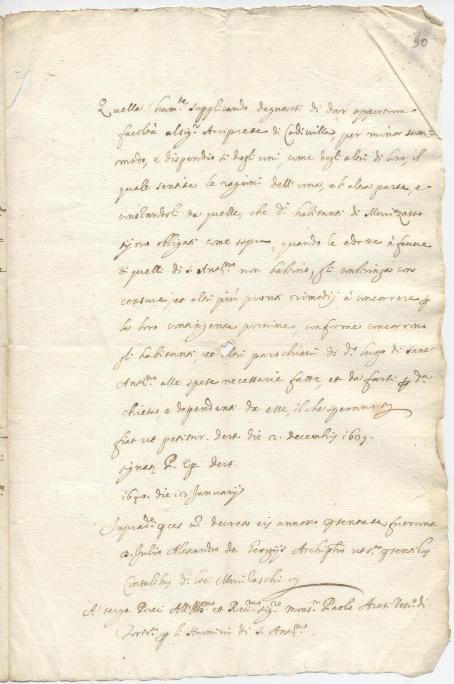 90
Quella hum.te supplicando degnarsi di dar opportuna
facoltà al sig.r Arciprete di Codivilla, per minor sum-
modo, e dispendio sì degli uni, come degli altri di loro, il
quale sentite le ragioni dell'una, et l'altra parte, e
constandoli da quelle, che d.i habitanti di
siino obligati come sopra, quando le adotte à favore
di quelli di S. Ant.no non bastino, gli constringa con
censure, et altri più pronti rimedij à concorrere
la loro contingente portione, conforme concorrono
gli habitanti, et altri parochiani di d.o luogo di Sant
Ant.no alle spese necessarie fatte, et da farsi d.a
chiesa, e dependenti da esse, il che sperano
fiat ut petitur. dert. die 2. decembris 1609.
signat. P. Ep. dert.
1610. die 12 Januarij
Supradictae preces decreto eis annexo presentate fuerunt
D. Julio Alexandro de Georgijs Archipbro
Consulibus di loci
A tergo. Preci All' Ill.mo et R.mo Sig.re mons.r Paolo Vesc.o di
Tort.a li Huomini di S. Ant.no.